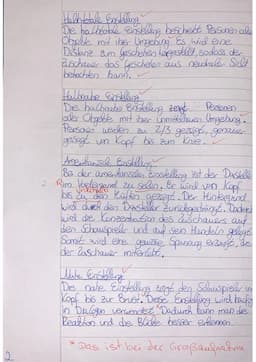 Halbtotale Einstellung
Die halbtotale Einstellung beschreibt Personen oder
Objekte mit ihrer Umgebung. Es wird eine
Distanz zum Geschehen hergestellt, sodass der
Zuschauer das Geschehen aus neutraler Sicht
betrachten kann.
Halbnahe Einstellung
Die halbnahe Einstellung zeigt Personen
oder Objekte mit ihrer unmittelbaren Umgebung.
Personen werden zu 2/3 gezeigt, genauer
gesagt von Kopf bis zum Knie.
Amerikanische Einstellung
Bei der amerikanischen Einstellung ist der Darsteller
im Vordergrund zu sehen. Er wird von Kopf
bis zu den Hüften gezeigt. Der Hintergrund
wird durch den Darsteller zurückgedrängt. Dadurch
wird die Konzentration des Zuschauers auf
den Schauspieler und auf sein Handeln gelegt.
Somit wird eine gewisse Spannung erzeugt, die
der Zuschauer miterlebt.
Nahe Einstellung
Die nahe Einstellung zeigt den Schauspieler von
Kopf bis zur Brust. Diese Einstellung wird häufig
in Dialogen verwendet. Dadurch kann man die
Reaktion und die Blicke besser erkennen.
* Das ist bei der Großaufnahme
2